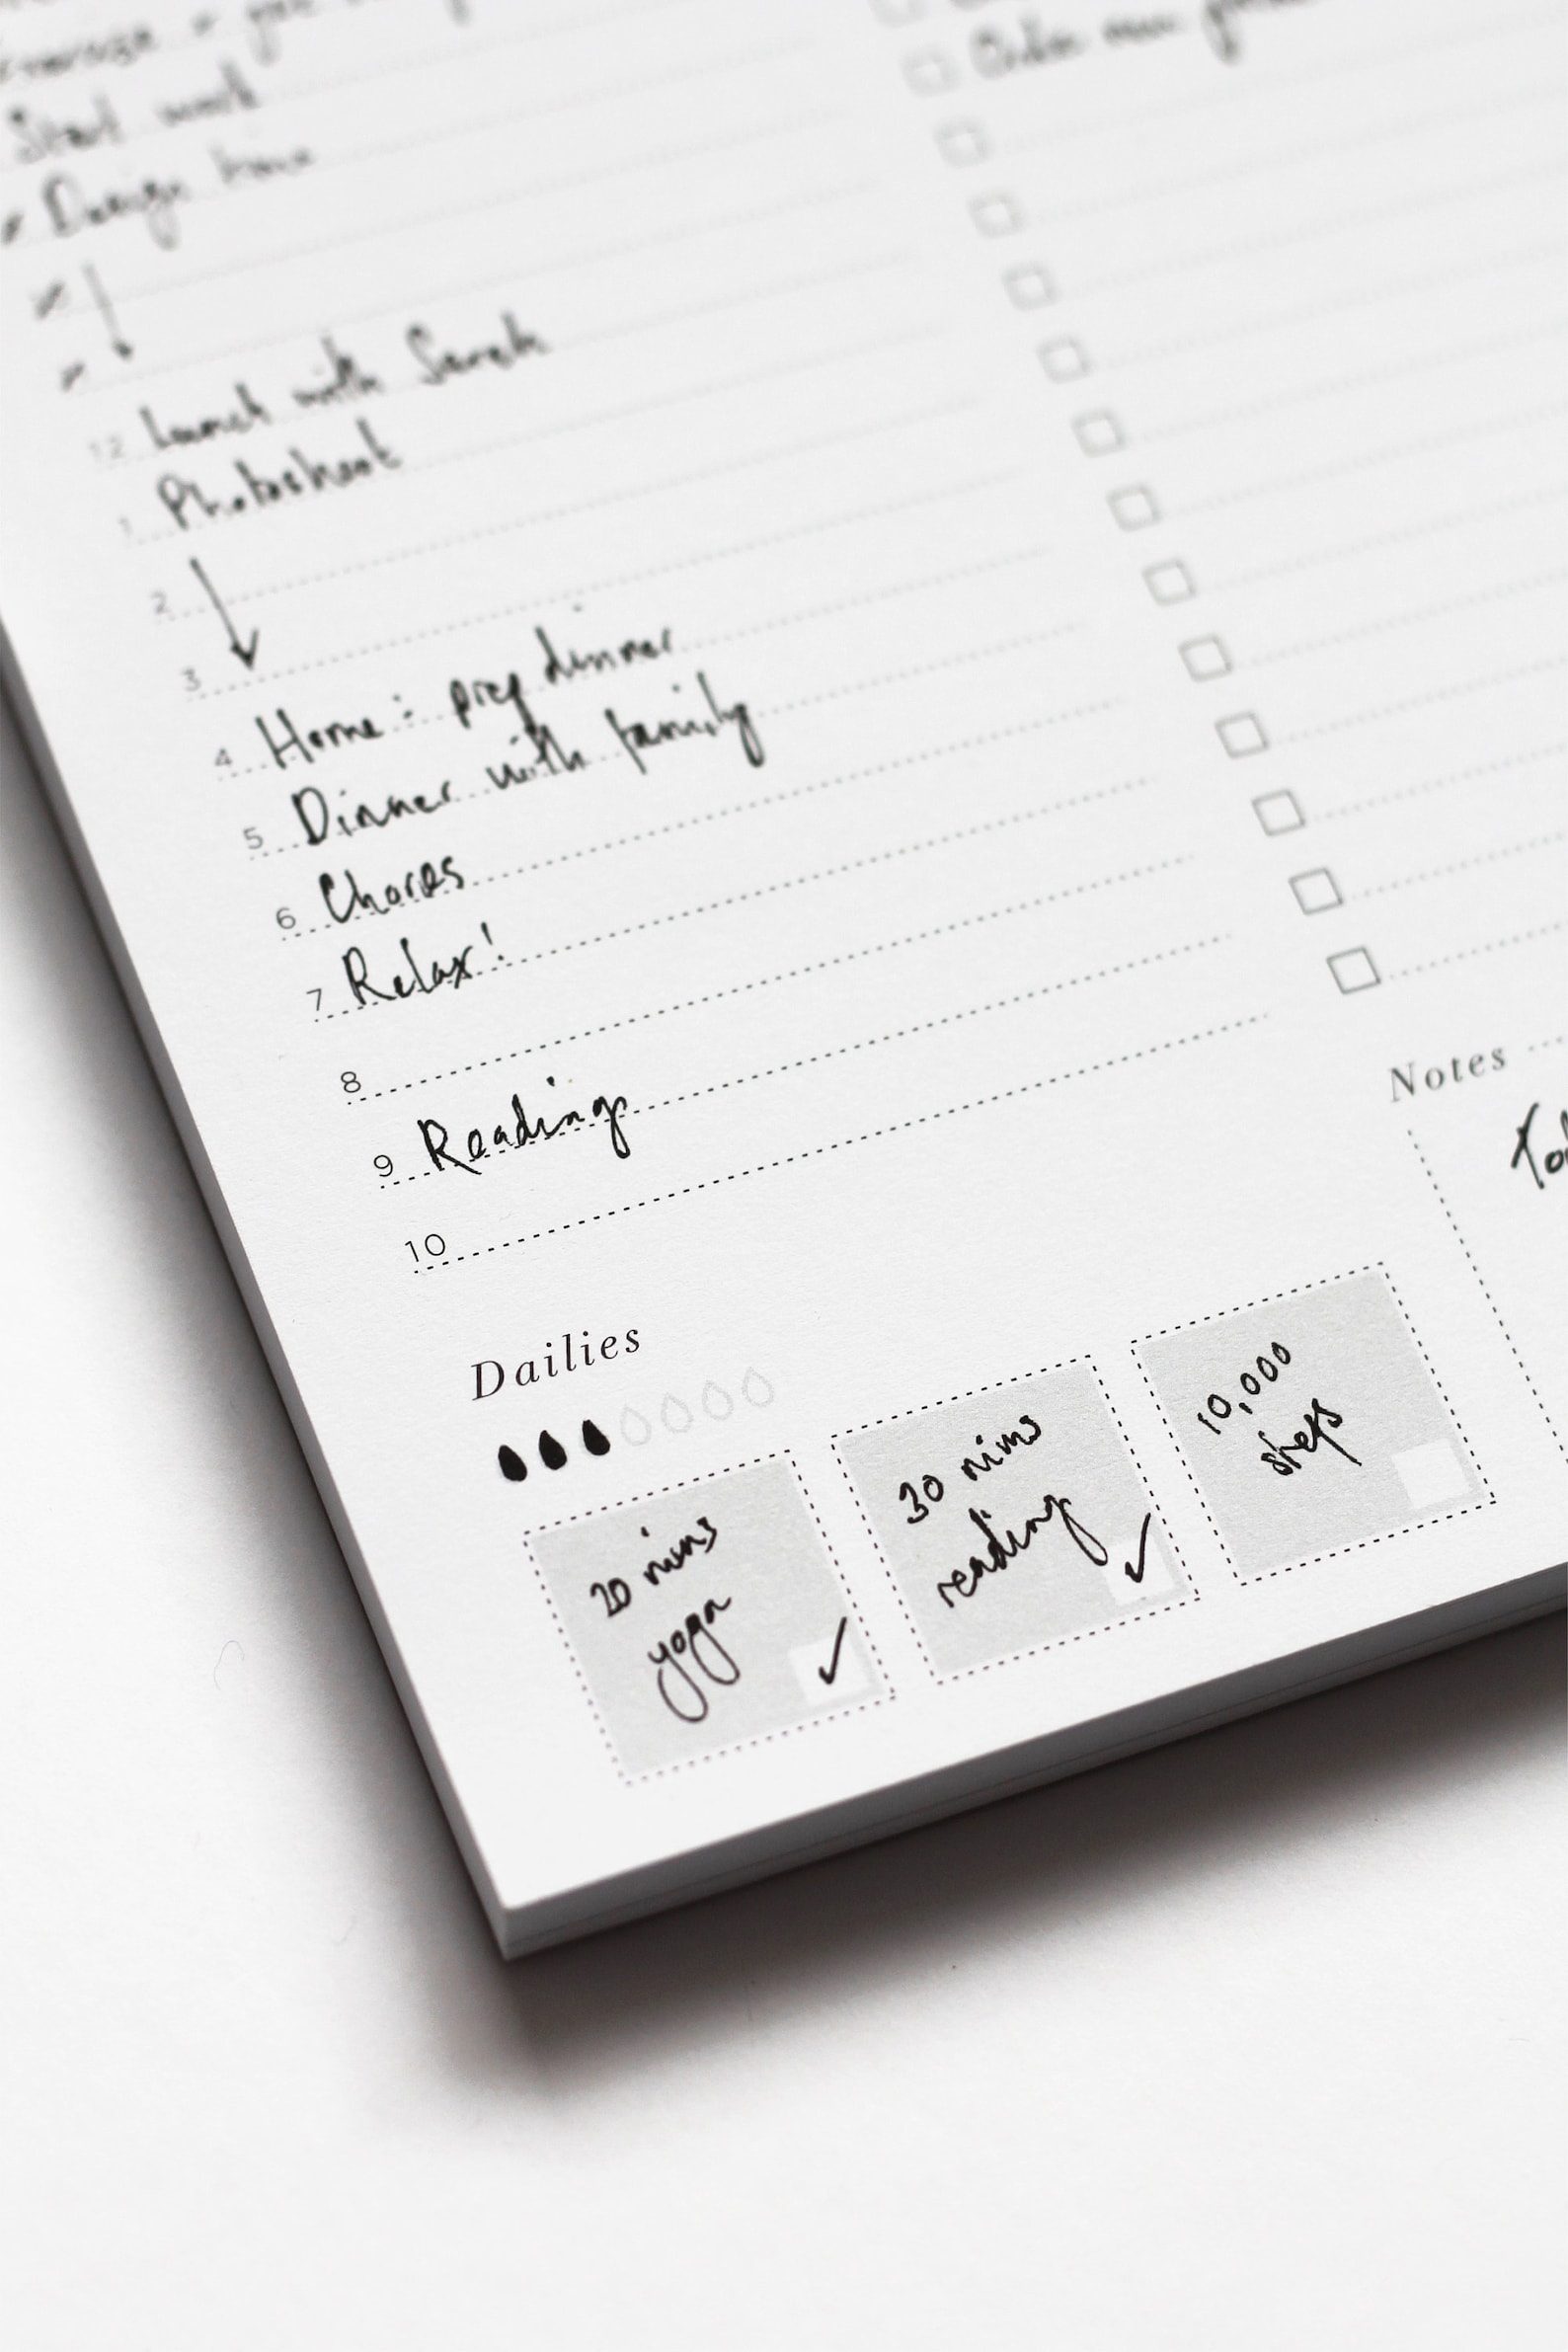 Start work
Design time
12 Lunch with Sarah
1 Photoshoot
2
3
4 Home: prep dinner
5 Dinner with family
6 Chores
7 Relax!
8
9 Reading
10
Dailies
20 mins
yoga
30 mins
reading
10,000
steps
Order new
Notes